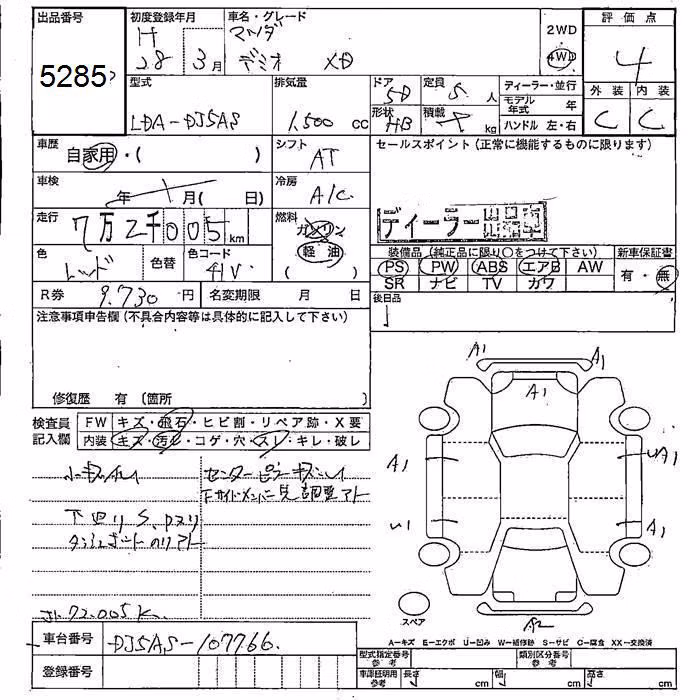 出品番号 初度登録年月 車名・グレード 2WD 評価点
5285 H 28 3月 マツダ デミオ XD 4WD 4
型式 排気量 ドア 5D 定員 5人 ディーラー・並行 外装 内装
LDA-DJ5AS 1,500 cc 形状 HB 積載 kg モデル年式 年 C C
ハンドル 左・右
車歴 自家用・( ) シフト AT セールスポイント (正常に機能するものに限ります)
車検 年 月( 日) 冷房 A/C
走行 7万2千005km 燃料 ガソリン 軽油 ( ) ディーラー出品車
色 レッド 色替 色コード 41V 装備品 (純正品に限り○をつけて下さい) 新車保証書
PS PW ABS エアB AW 有・無
SR ナビ TV カワ
R券 9,730円 名変期限 月 日 後日品
注意事項申告欄 (不具合内容等は具体的に記入して下さい)
修復歴 有 (箇所 )
検査員記入欄 FW キズ・飛石・ヒビ割・リペア跡・X要
内装 キズ・汚レ・コゲ・穴・スレ・キレ・破レ
小キズ凹
センターピラーキズ凹
下サイドメンバー先調整アト
下回りS、Pヌリ
ダッシュボードのリアト
72,005K
A1 A1
A1
A1 A1
A1
A2
スペア
A-キズ E-エクボ U-凹み W-補修跡 S-サビ C-腐食 XX-交換済
車台番号 DJ5AS-107766
登録番号
型式指定番号 参考 類別区分番号 参考
車庫証明用 参考 長さ cm 幅 cm 高さ cm